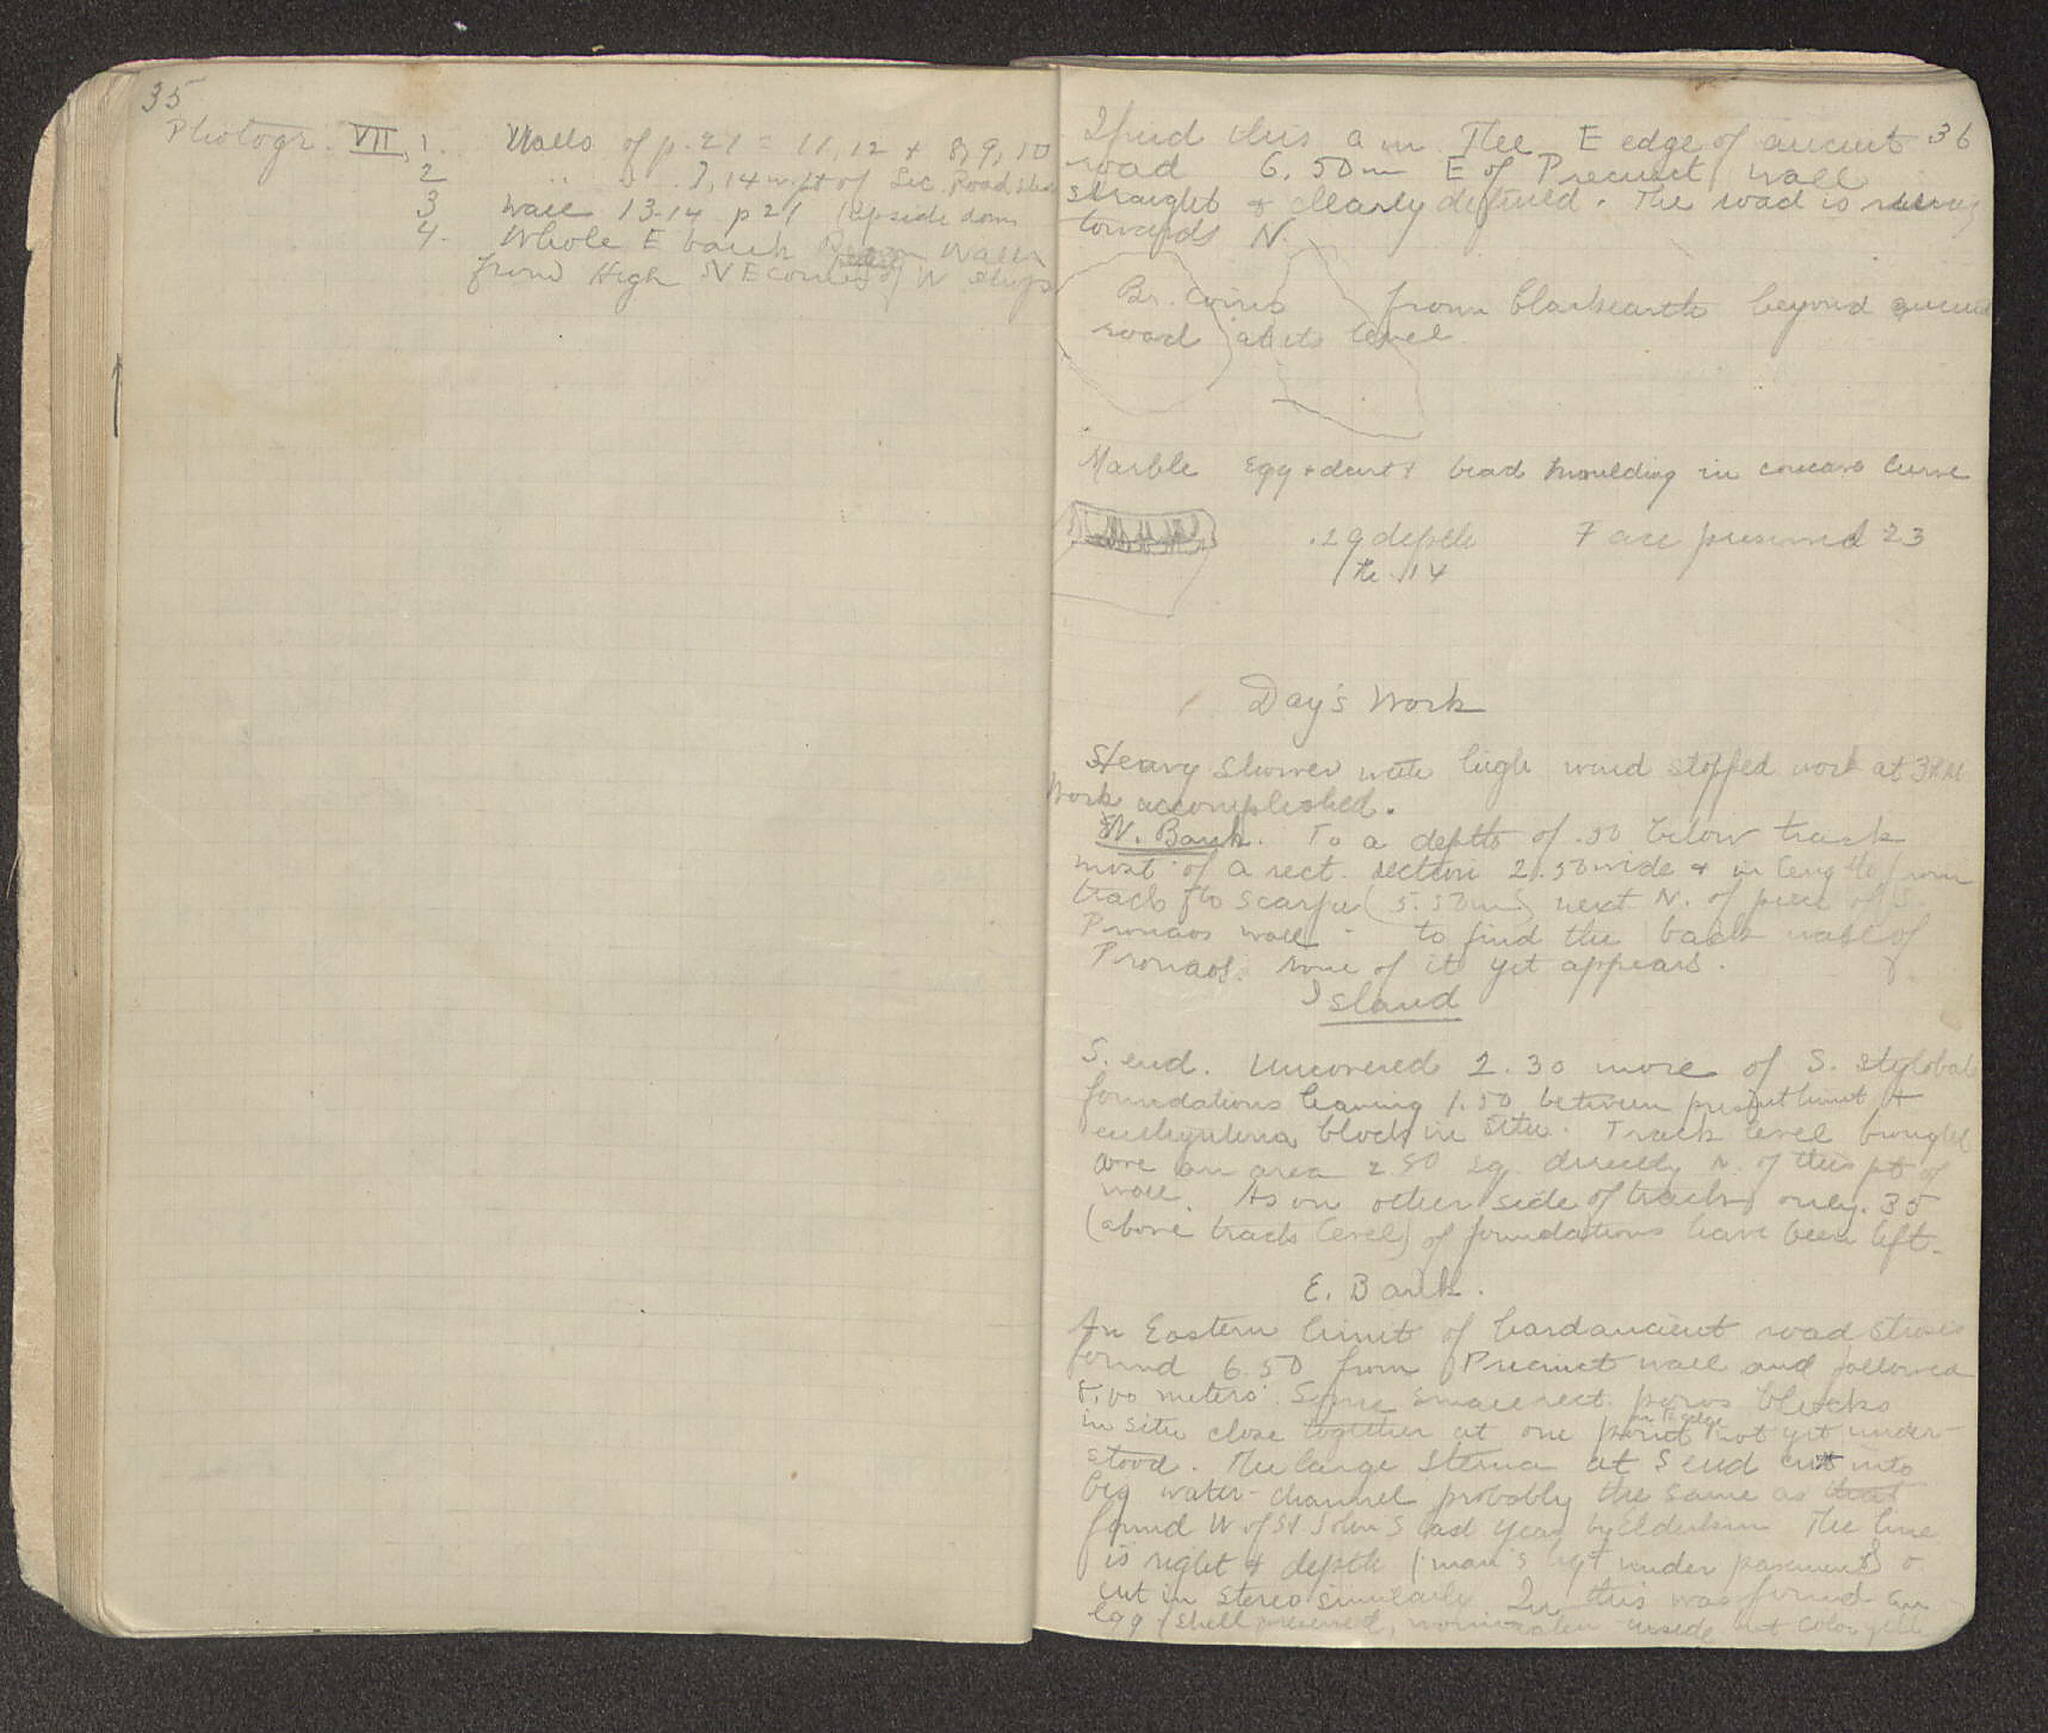 35
Photogr. VII, 1. Walls of p. 21 = 11, 12 + 8, 9, 10
2 " " 14 of Sec. Road
3 Wall 13-14 p 21 (upside down
4. Whole E bank Walls
from High NE corner of W
36
I find this a m The E edge of ancient
road 6.50m E of Precinct wall
straight & clearly defined. The road is
towards N.
Br. coins from black earth beyond
road at its level
Marble Egg & dart & bead moulding in concave curve
.29 depth 7 are preserved 23
th .14
Day's Work
Heavy shower with high wind stopped work at 3 P.M
Work accomplished.
N. Bank. To a depth of .50 below track
most of a rect. section 2.50 wide & in length from
track to scarp (5.50m) next N. of piece of S.
Pronaos wall - to find the back wall of
Pronaos. None of it yet appears.
Island
S. end. Uncovered 2.30 more of S. stylobate
foundations leaving 1.50 between present limit &
euthynteria block in situ. Track level brought
over an area 2.50 sq. directly N. of this pt of
wall. As on other side of track only .35
(above track level) of foundations have been left.
E. Bank.
An Eastern limit of hard ancient road
found 6.50 from Precinct wall and followed
meters. Some small rect. poros blocks
in situ close together at one point on E edge not yet under-
stood. The large at S end cut into
big water-channel probably the same as that
found W of St John's last year by Elderkin The line
is right & depth (man's hgt under pavement) &
cut in stereo similarly In this was found an
Egg (shell preserved, inside but color